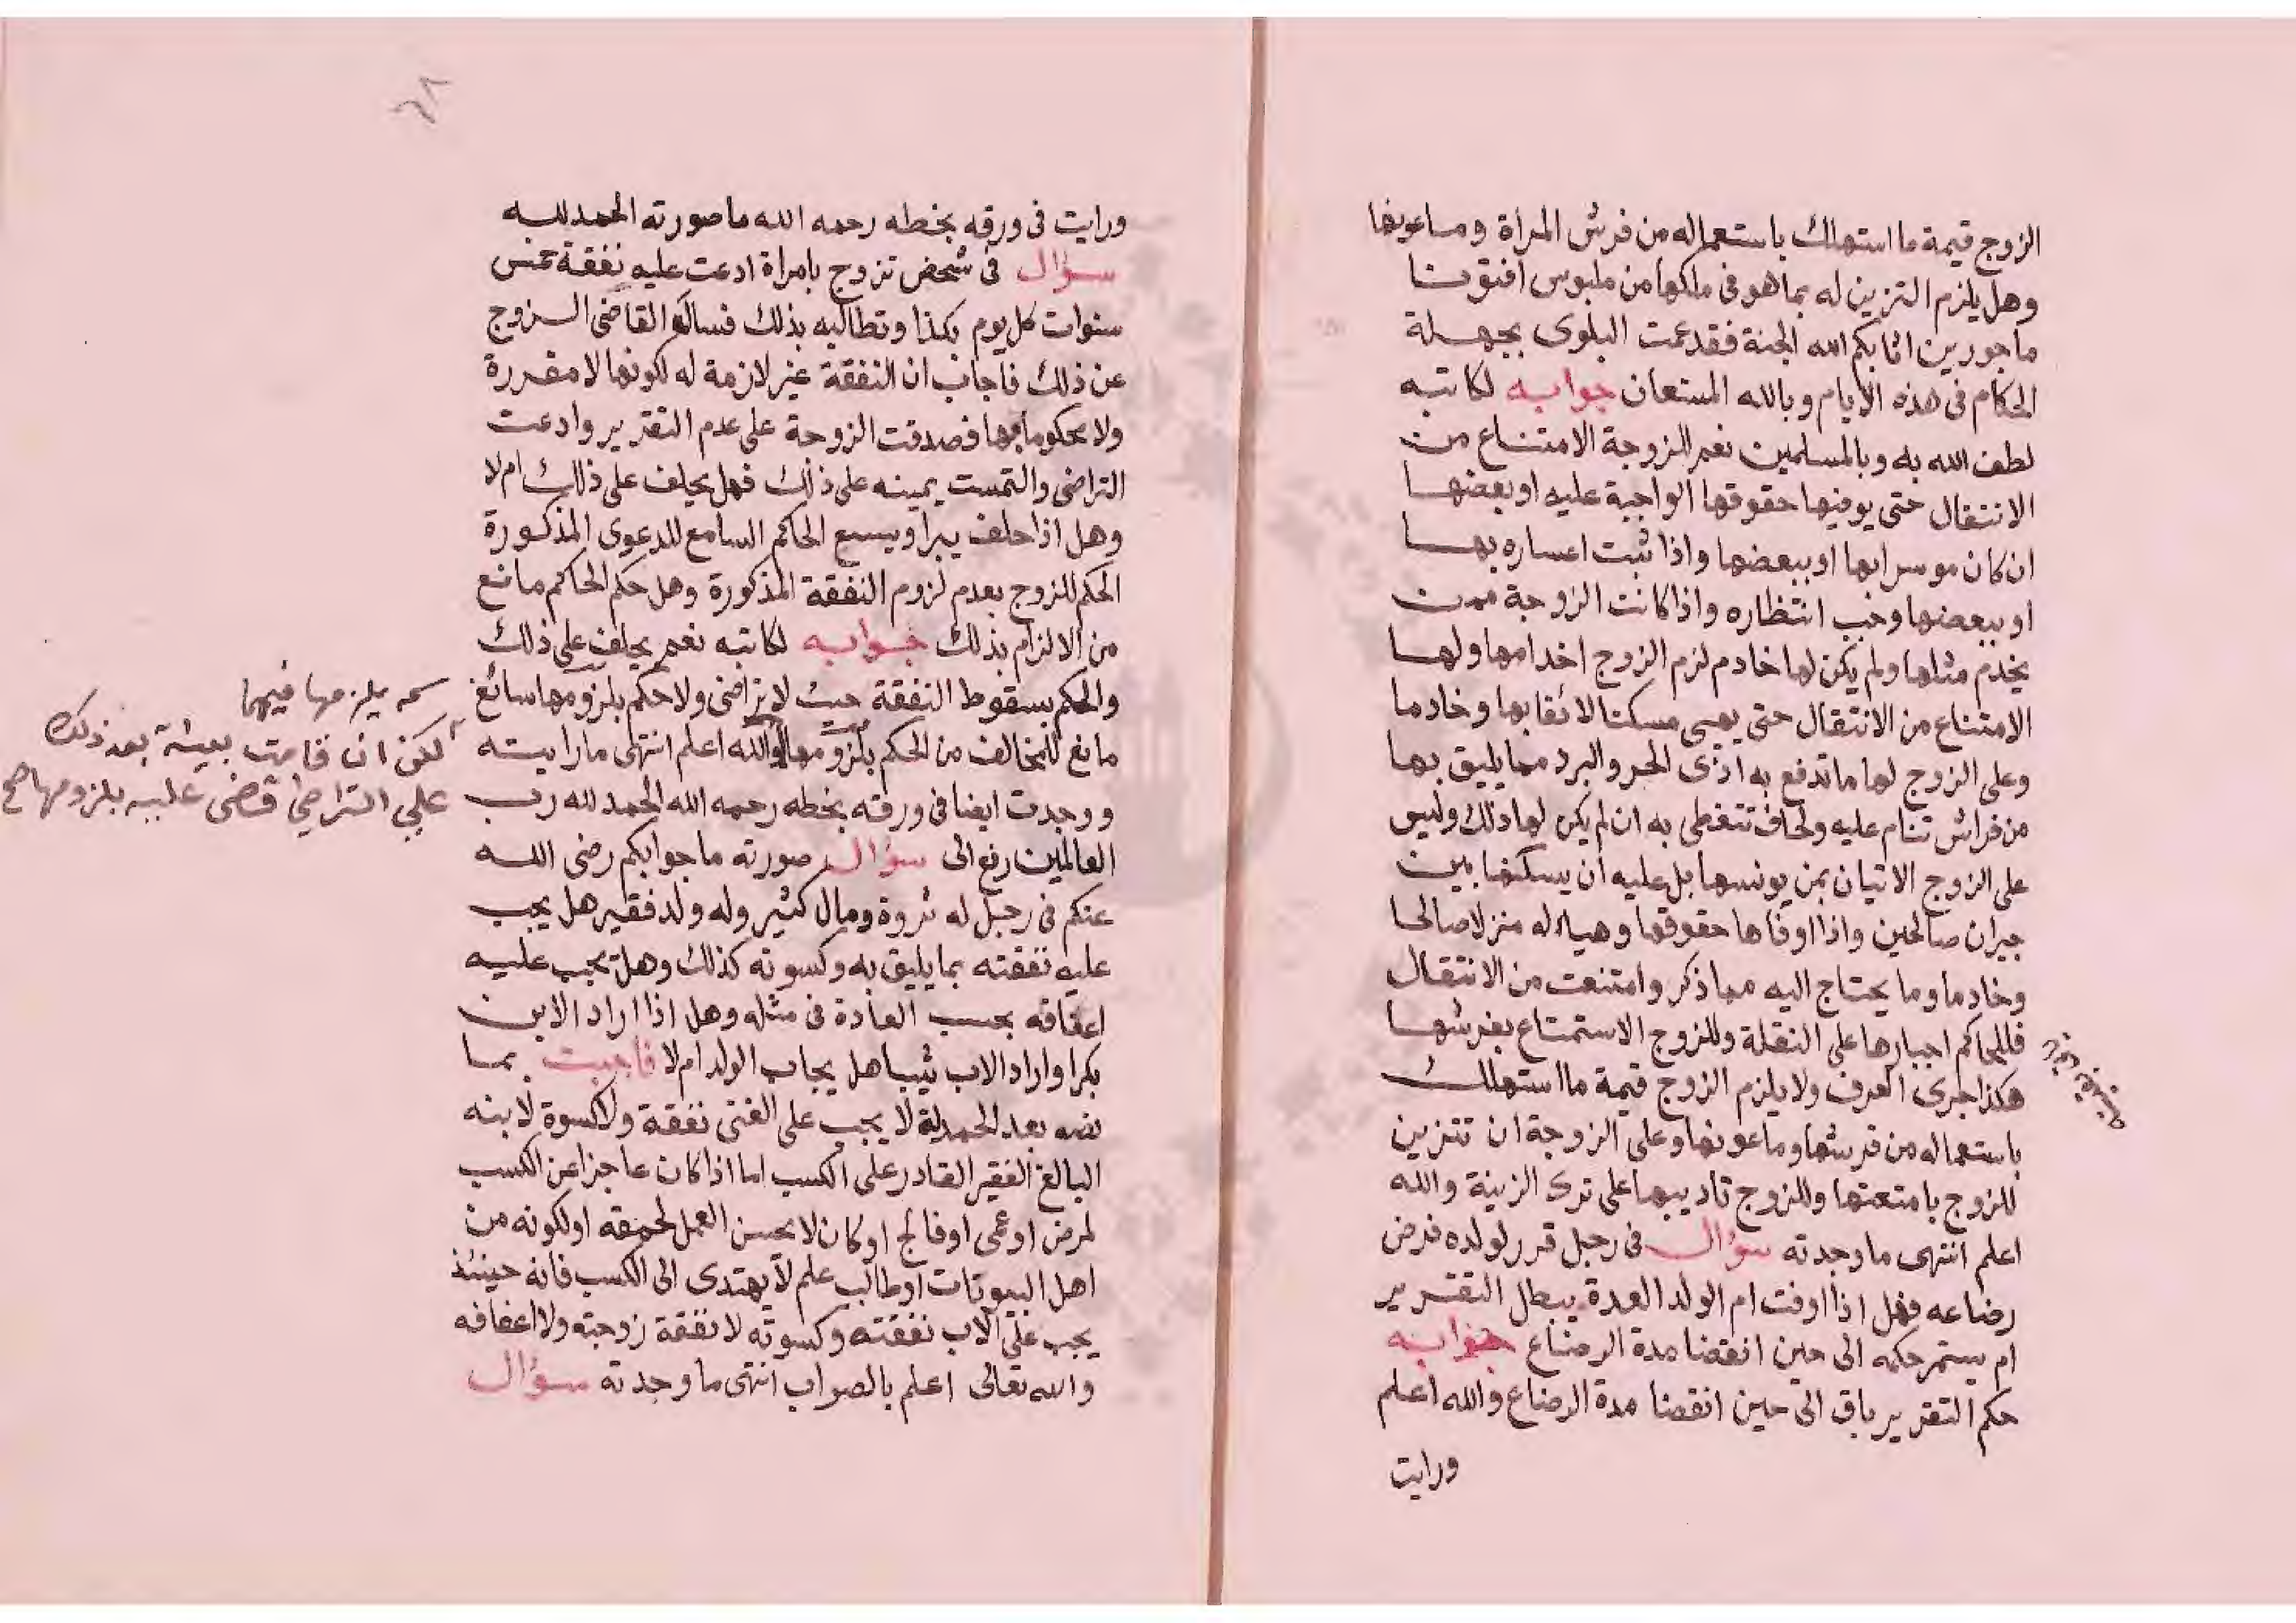 الزوج قيمة ما استهلك باستعماله من فرش المراة وماعونها
وهل يلزم التزين له بما هو في ملكها من ملبوس افتونا
ماجورين اثابكم الله الجنة فقد عمت البلوى بجهلة
الحكام في هذه الايام وبالله المستعان جوابه لكاتبه
لطف الله به وبالمسلمين نعم للزوجة الامتناع من
الانتقال حتى يوفيها حقوقها الواجبة عليه او بعضها
ان كان موسرا بها او ببعضها واذا ثبت اعساره بها
او ببعضها وجب انتظاره واذا كانت الزوجة ممن
يخدم مثلها ولم يكن لها خادم لزم الزوج اخدامها ولها
الامتناع من الانتقال حتى يهيى مسكنا لائقا بها وخادما
وعلى الزوج لها ما تدفع به اذى الحر والبرد مما يليق بها
من فراش تنام عليه ولحاف تتغطى به ان لم يكن لها ذلك وليس
على الزوج الاتيان بمن يونسها بل عليه ان يسكنها بين
جيران صالحين واذا اوفاها حقوقها وهياء له منزلا صالحا
وخادما وما يحتاج اليه مما ذكر وامتنعت من الانتقال
فللحاكم اجبارها على النقلة وللزوج الاستمتاع بفرشها
هكذا جرى العرف ولا يلزم الزوج قيمة ما استهلك
باستعماله من فرشها وماعونها وعلى الزوجة ان تتزين
للزوج بامتعتها وللزوج تاديبها على ترك الزينة والله
اعلم انتهى ما وجدته سؤال في رجل قرر لولده فرض
رضاعه فهل اذا اوفت ام الولد العدة يبطل التقرير
ام يستمر حكمه الى حين انقضا مدة الرضاع جوابه
حكم التقرير باق الى حين انقضا مدة الرضاع والله اعلم
ورايت
٦٨
ورايت في ورقه بخطه رحمه الله ما صورته الحمد لله
سؤال في شخص تزوج بامراة ادعت عليه نفقة خمس
سنوات كل يوم بكذا وتطالبه بذلك فساله القاضى الزوج
عن ذلك فاجاب ان النفقة غير لازمة له لكونها لا مقررة
ولا محكوما بها فصدقت الزوجة على عدم التقرير وادعت
التراضى والتمست يمينه على ذلك فهل يحلف على ذلك ام لا
وهل اذا حلف يبرا ويسع الحاكم السامع للدعوى المذكورة
الحكم للزوج بعدم لزوم النفقة المذكورة وهل حكم الحاكم مانع
من الالزام بذلك جوابه لكاتبه نعم يحلف على ذلك
والحكم بسقوط النفقة حيث لا تراضى ولا حكم بلزومها سائغ
مانع للمخالف من الحكم بلزومها والله اعلم انتهى ما رايته
ووجدت ايضا في ورقته بخطه رحمه الله الحمد لله رب
العالمين رفع الى سؤال صورته ما جوابكم رضى الله
عنكم في رجل له ثروة ومال كثير وله ولد فقير هل يجب
عليه نفقته بما يليق به وكسوته كذلك وهل يجب عليه
اعفافه بحسب العادة في مثله وهل اذا اراد الابن
بكرا واراد الاب ثيبا هل يجاب الولد ام لا فاجبت بما
نصه بعد الحمدلة لا يجب على الغنى نفقة ولا كسوة لابنه
البالغ الفقير القادر على الكسب اما اذا كان عاجزا عن الكسب
لمرض او عمى او فالج او كان لا يحسن العمل لحمقه او لكونه من
اهل البيوتات او طالب علم لا يهتدى الى الكسب فانه حينئذ
يجب على الاب نفقته وكسوته لا نفقة زوجته ولا اعفافه
والله تعالى اعلم بالصواب انتهى ما وجدته سؤال
يلزمها فيهما
لكن ان قامت بينة بعد ذلك
على التراضي قضى عليه بلزومها صح